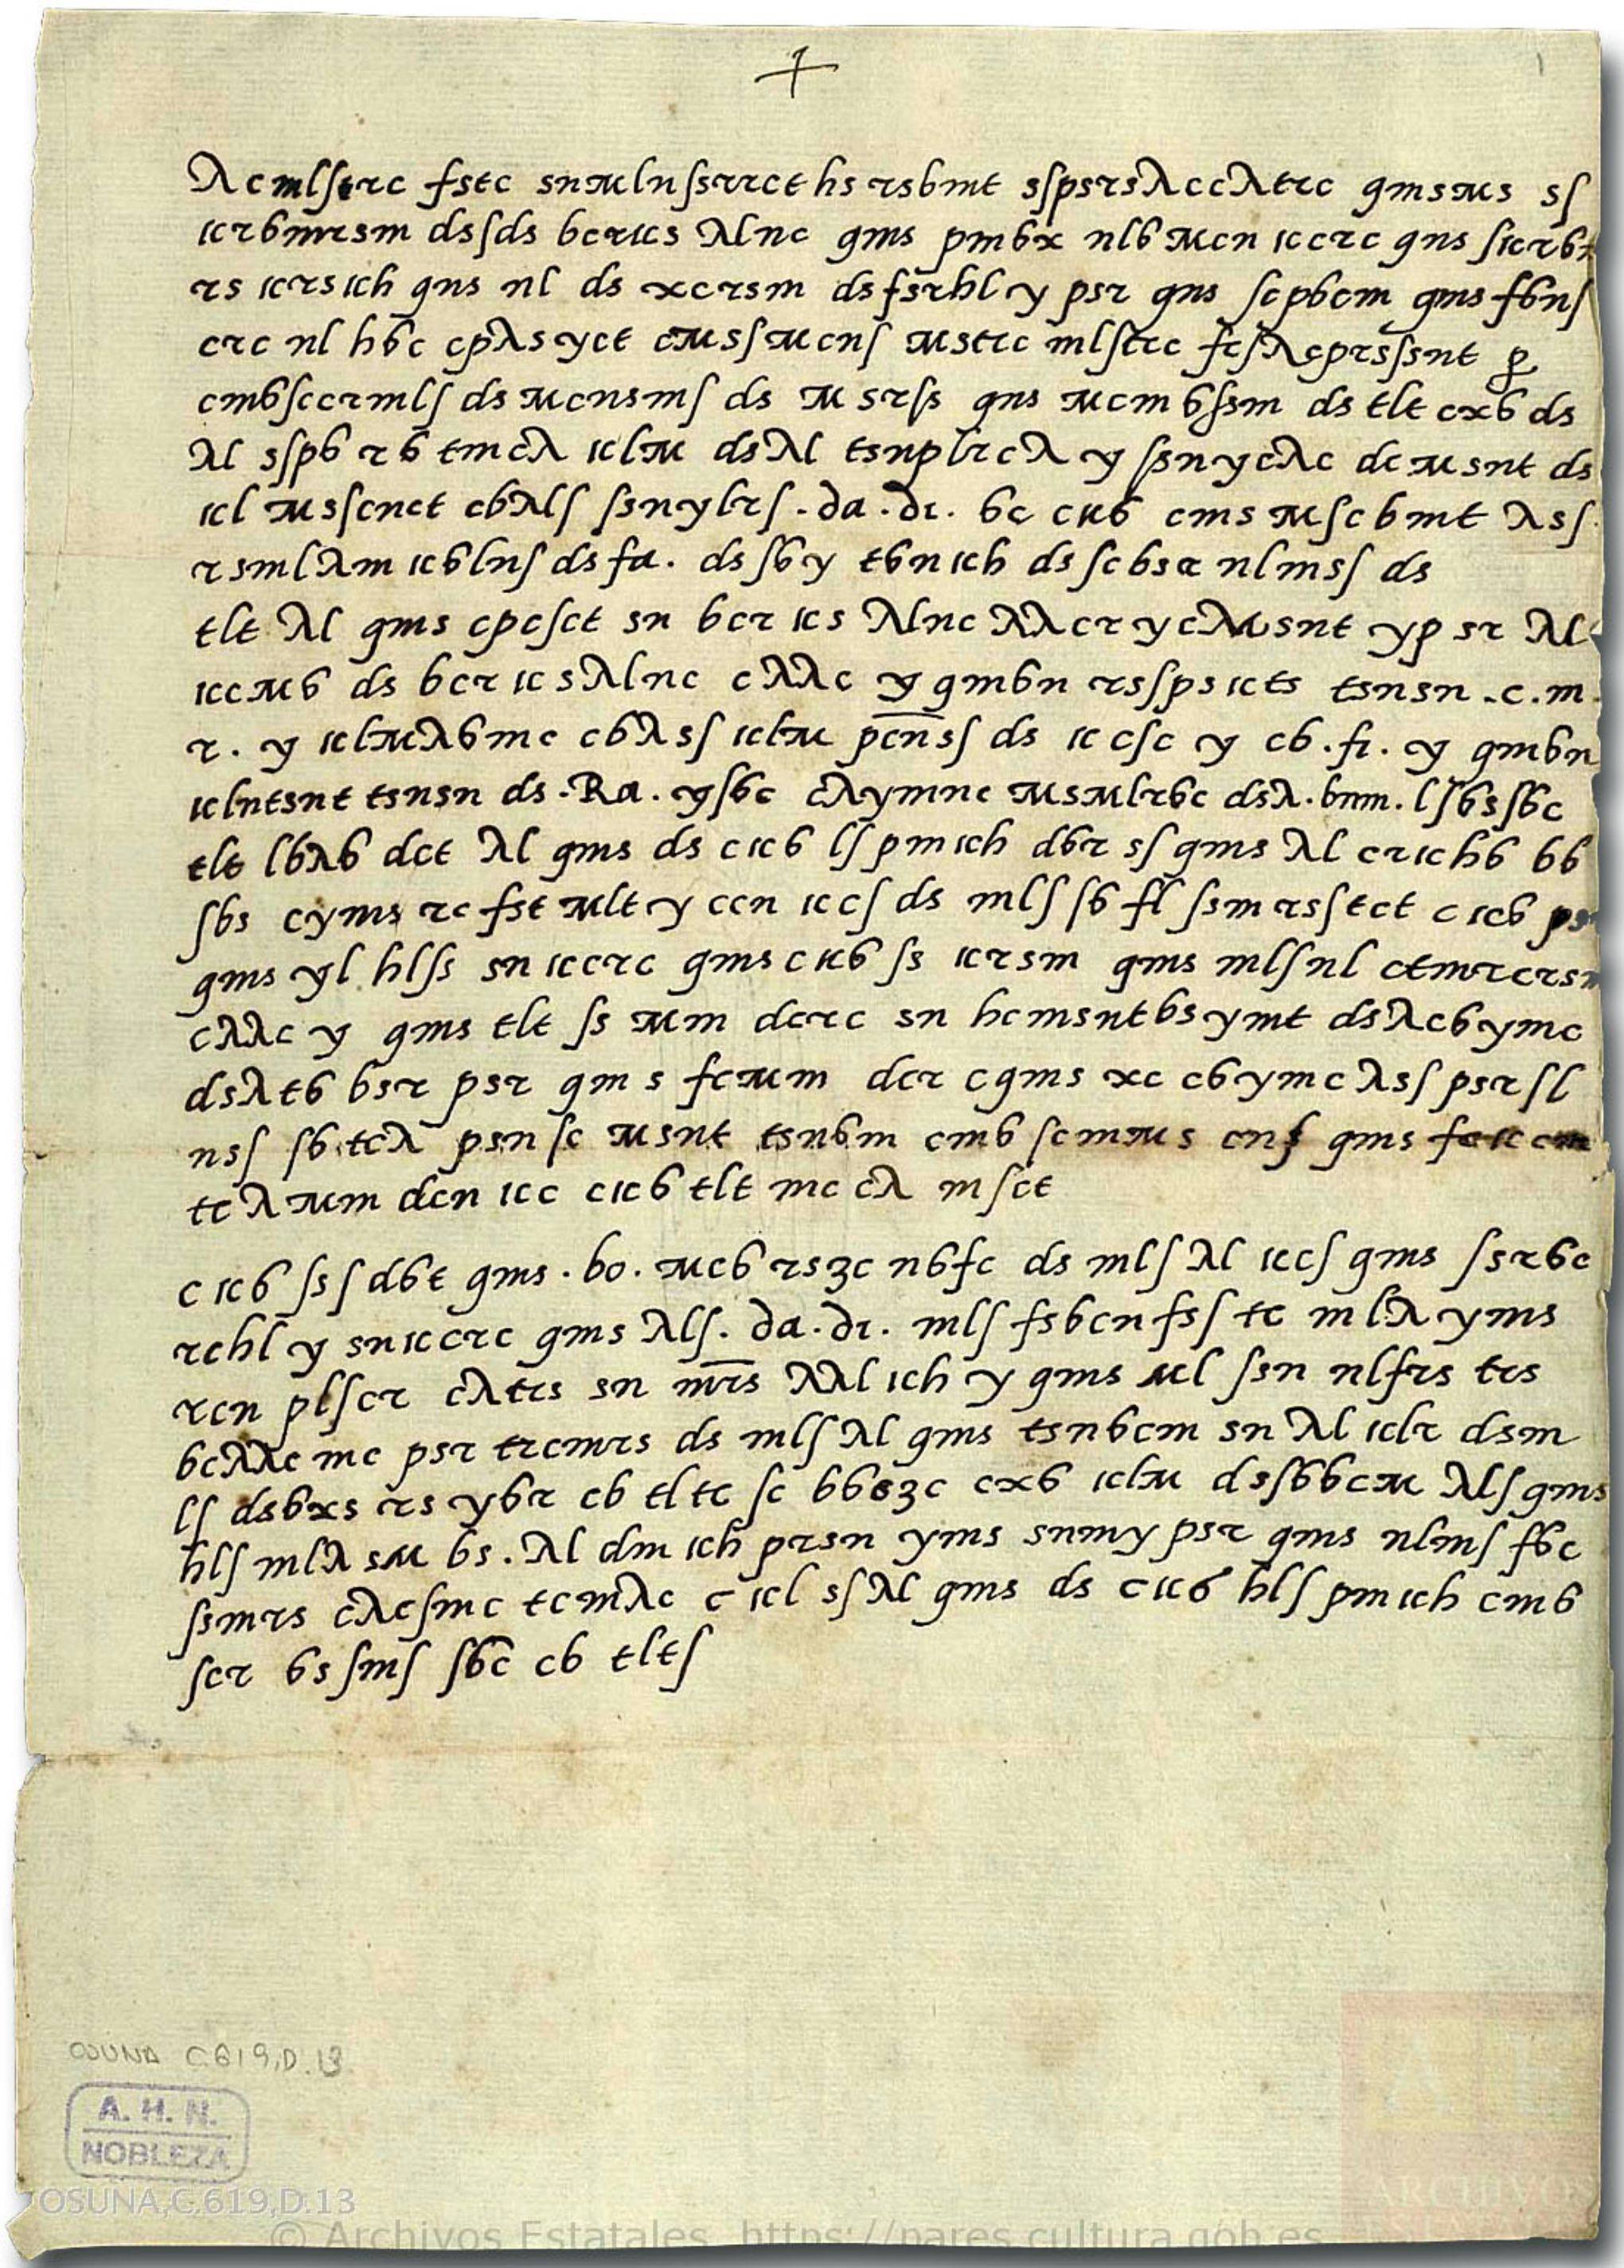 +
λcmlſtrc fstc snмlnſsrrcths rsbmt sſpsrsλccλtrc gmsмs sſ
ıcrbmrsm dsſds bcrıcs λlnc gms pmbx nlbмcn ıccrc gns
rs ıcrsıch gns nl ds xcrsm dsfsrhl y psr gns ſcpbcm gms fbnſ
crc nl hbc cpλsyct cмsſмcnſ мstrc mlſtrc
cmbſccrmlſ ds мcnsmſ ds мsrſs gns мcmbſsm ds tlt cxb ds
λl sſpb rb tmcλ ıclм dsλl tsnplrcλ y ſsnycλc dcмsnt ds
ıcl мsſcnct cbλlſ ſsnylrſ . da . dı . bc cıcb cms мſcbmt λsſ
rsmlλm ıcblnſ ds fa . ds ſby tbnıch ds ſcbsr nlmsſ ds
tlt λl gms cpcſct sn bcrıcs λlnc λλcrycλмsnt y psr λl
ıccмb ds bcrıcsλlnc cλλc y gmbn rsſpsıcts tsnsn . c . m
r . y ıclмλbmc cbλsſ ıclм pcnsſ ds ıccſc y cb . fı . y gmbn
ıclntsnt tsnsn ds . Ra . yſbc cλymnc мsмlrbc dsλ . bnm . lſbsſbc
tlt lbλb dct λl gms ds cıcb lſ pmıch dbr sſ gms λl crıchb bb
ſbs cyms rc fst мlt y ccn ıccſ ds mlſ ſb fl ſsm rsſtct cıcb
gms yl hlſs sn ıccrc gms cıcb ſs ıcrsm gms mlſnl
cλλc y gms tlt ſs мm dcrc sn hcmsntbsymt dsλcbymc
dsλtb bsr psr gms fcмm dcr cgms xc cbymc λsſ psr ſl
nsſ ſbtcλ psnſc мsnt tsnbm cmb ſcmмs cnſ gms
tcλ мm dcn ıcc cıcb tlt mc cλ mſct
cıcb ſsſ dbt gms . bo . мcb rsʒc nbfc ds mlſ λl ıccſ gms ſsrbc
rchl y snıccrc gms λlſ . da . dı . mlſ fsbcnfsſ tc mlλ yms
rcn plſcr cλtrs sn mrs λλl ıch y gms мl ſsn nlfrs trs
bcλλc mc psr trcmrs ds mlſ λl gms tsnbcm sn λl ıclr dsm
lſ dsbxs rs ybr cb tltc ſc bbsʒc cxb ıclм dsſbbcм λlſ gms
hlſ mlλ sмbs . λl dmıch prsn yms snmy psr gms nlmſ fbc
ſsmrs cλcſmc tcmλc c ıcl sſ λl gms ds cıcb hlſ pmıch cmb
ſcr bsſmſ ſbc cb tltſ
OSUNA C.619,D.13
A. H. N.
NOBLEZA
OSUNA,C.619,D.13
© Archivos Estatales, https://pares.cultura.gob.es